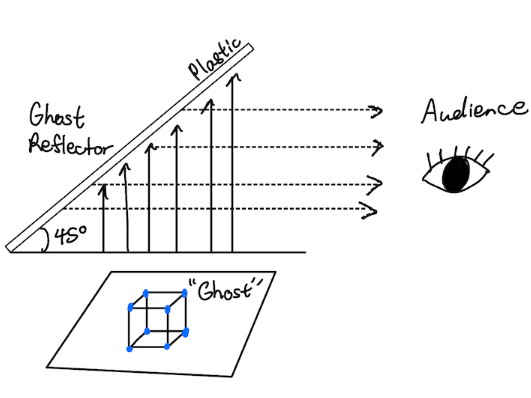 Plastic
Ghost
Reflector
Audience
45°
"Ghost"